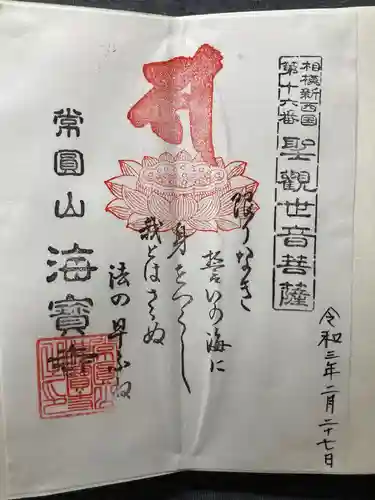 相模新西国
第十六番
聖観世音菩薩
令和三年二月二十七日
限りなき
誓いの海に
身をつくし
我とはさらぬ
法の早ふね
常圓山
海寶